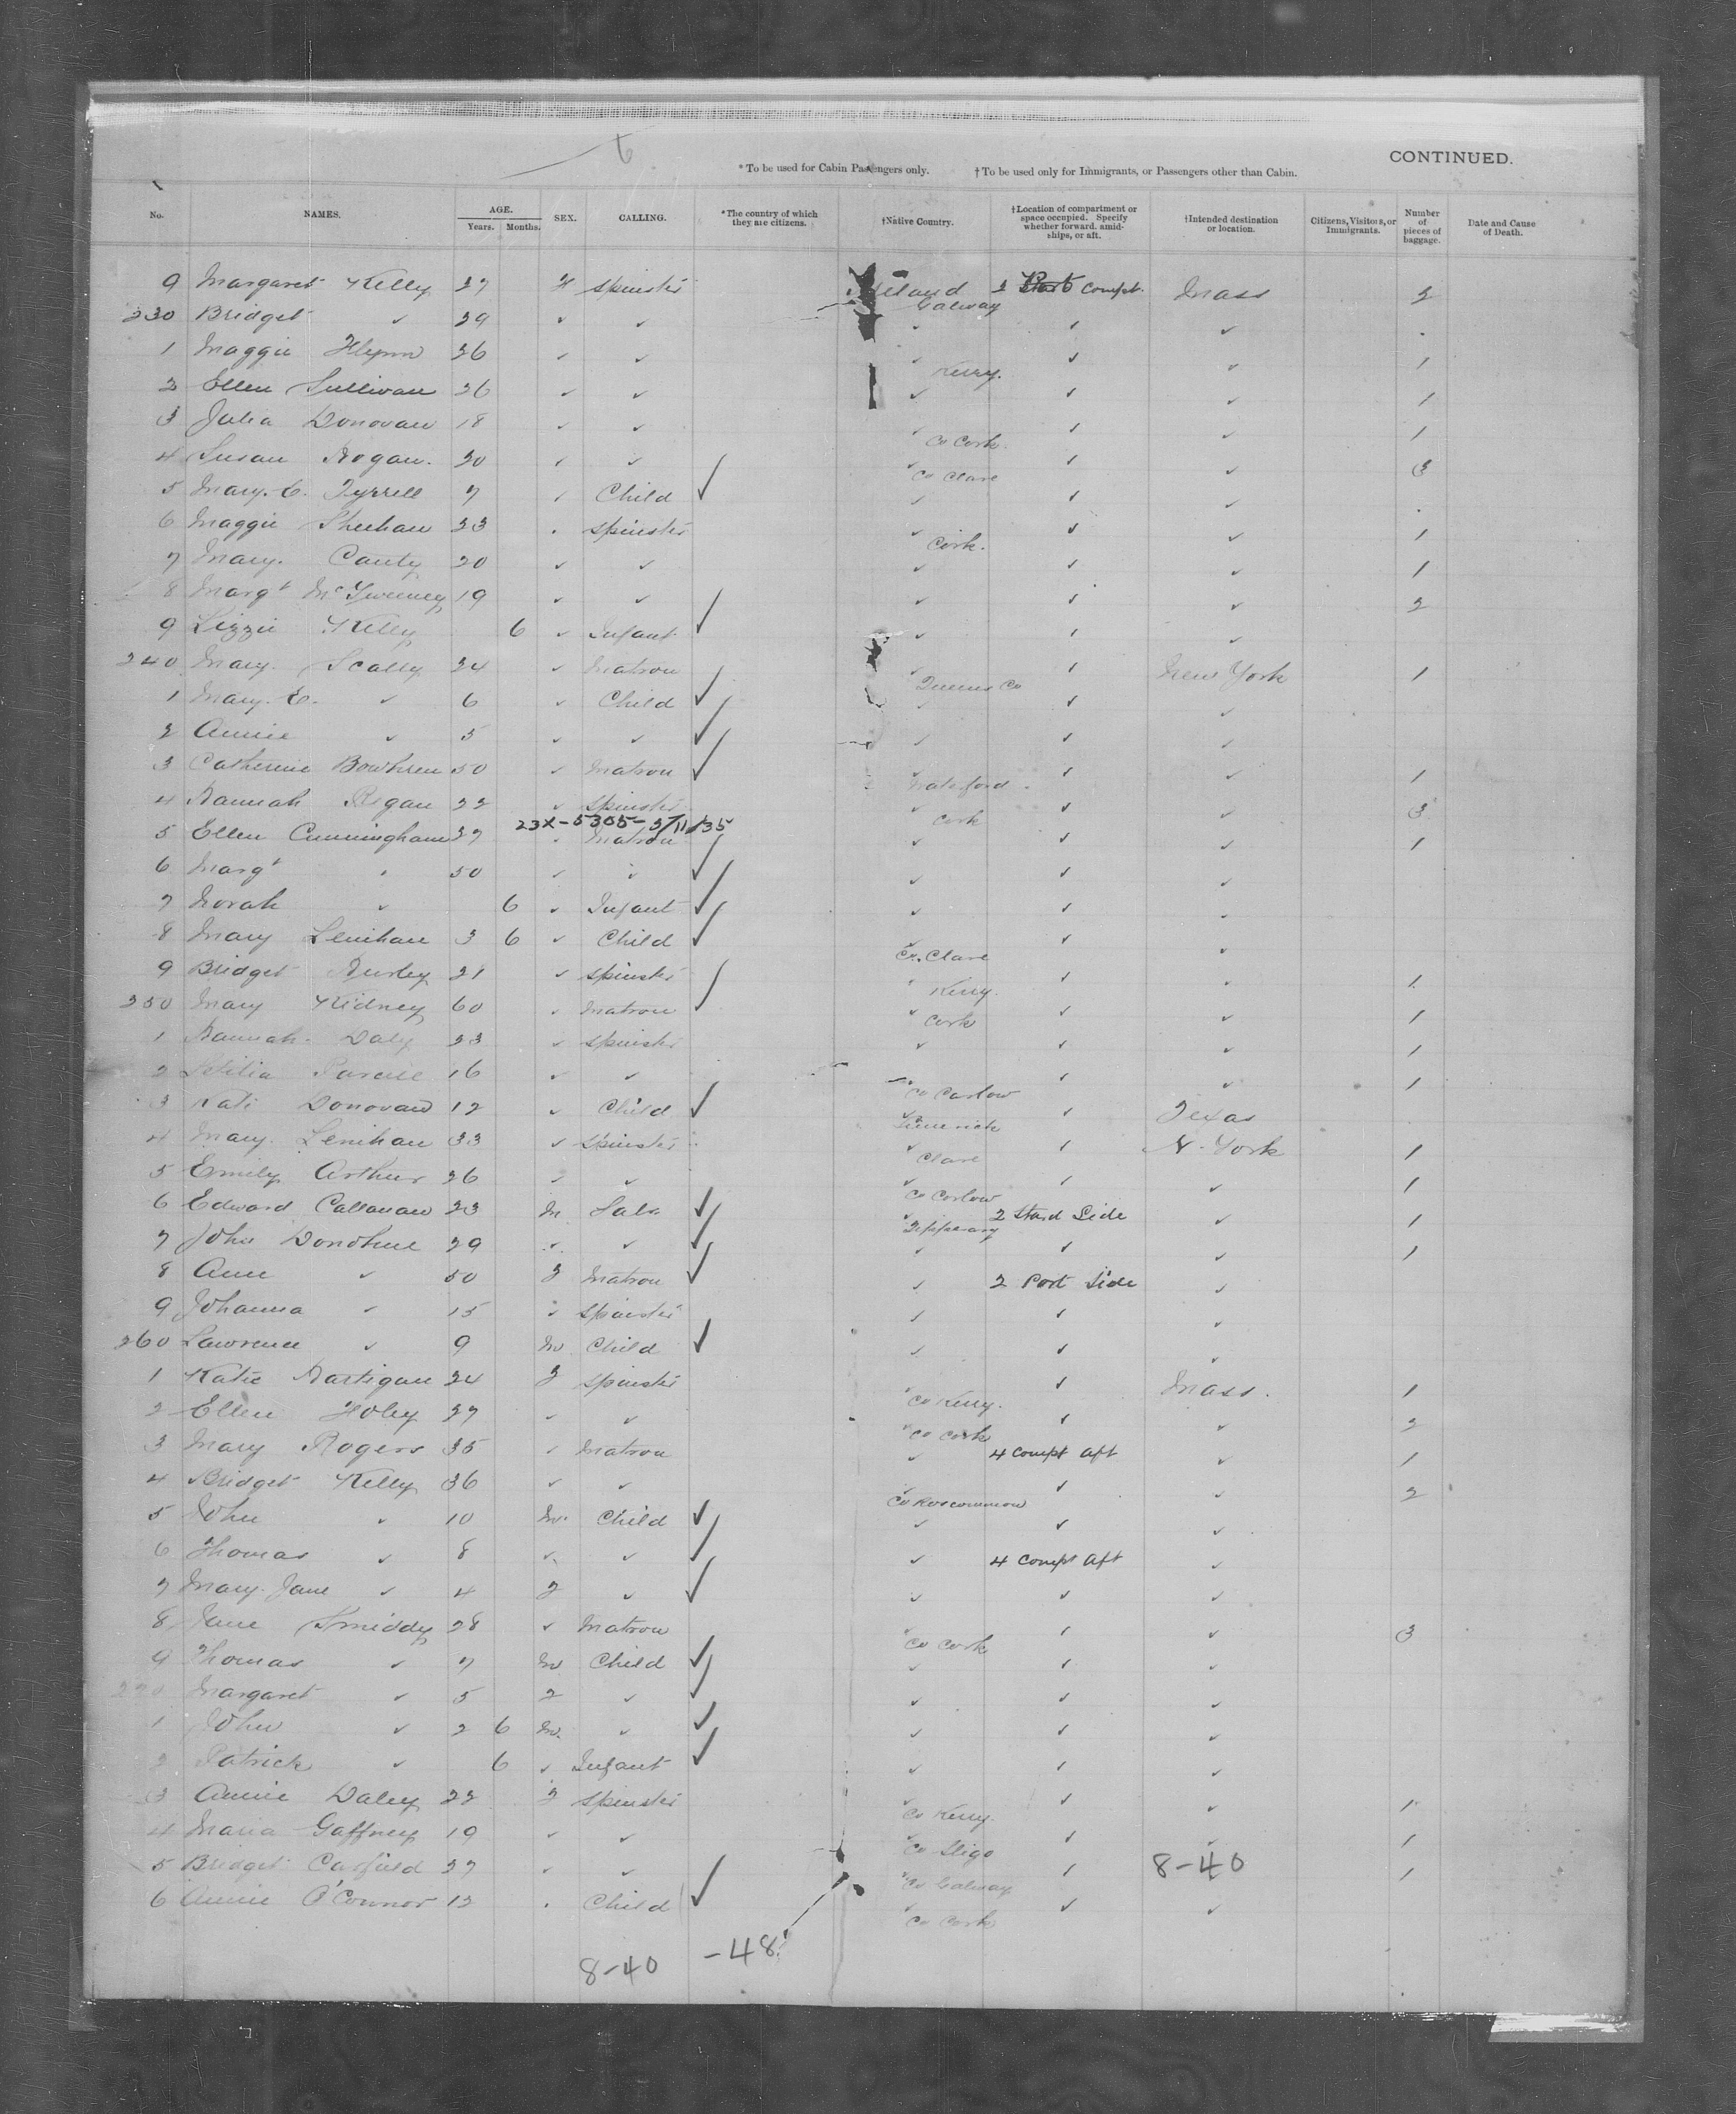 6
CONTINUED.
* To be used for Cabin Passengers only. † To be used only for Immigrants, or Passengers other than Cabin.
No. NAMES. AGE. Years. Months. SEX. CALLING. *The country of which they are citizens. †Native Country. †Location of compartment or space occupied. Specify whether forward, amid-ships, or aft. †Intended destination or location. Citizens, Visitors, or Immigrants. Number of pieces of baggage. Date and Cause of Death.
9 Margaret Kelly 27 F Spinster Ireland Galway 2 Port Compt. Mass 2
230 Bridget ✓ 29 ✓ ✓ ✓ ✓ ✓
1 Maggie Flynn 26 ✓ ✓ ✓ Kerry. ✓ ✓ 1
2 Ellen Sullivan 26 ✓ ✓ ✓ ✓ ✓ 1
3 Julia Donovan 18 ✓ ✓ ✓ Co Cork ✓ ✓ 1
4 Susan Hogan. 20 ✓ ✓ ✓ Co Clare ✓ ✓ 3
5 Mary. E. Tyrrell 7 ✓ Child ✓ ✓ ✓ ✓
6 Maggie Sheehan 23 ✓ Spinster ✓ Cork. ✓ ✓ 1
7 Mary. Canty 20 ✓ ✓ ✓ ✓ ✓ 1
8 Margt McSweeney 19 ✓ ✓ ✓ ✓ ✓ 2
9 Lizzie Kelly 6 ✓ Infant ✓ ✓ ✓ ✓
240 Mary. Scally 24 ✓ Matron ✓ Queens Co ✓ New York 1
1 Mary. E. ✓ 6 ✓ Child ✓ ✓ ✓ ✓
2 Annie ✓ 5 ✓ ✓ ✓ ✓ ✓ ✓
3 Catherine Bowhren 50 ✓ Matron ✓ ✓ Waterford ✓ ✓ 1
4 Hannah Regan 22 ✓ Spinster ✓ Cork ✓ ✓ 3
23X-5305-3/11/35
5 Ellen Cunningham 27 ✓ Matron ✓ ✓ ✓ ✓ 1
6 Margt ✓ 50 ✓ ✓ ✓ ✓ ✓ ✓
7 Norah ✓ 6 ✓ Infant ✓ ✓ ✓ ✓
8 Mary Lenihan 3 6 ✓ Child ✓ ✓ Co. Clare ✓ ✓
9 Bridget Hurley 21 ✓ Spinster ✓ Kerry. ✓ ✓ 1
250 Mary Kidney 60 ✓ Matron ✓ ✓ Cork ✓ ✓ 1
1 Hannah Daly 23 ✓ Spinster ✓ ✓ ✓ 1
2 Letitia Purcell 16 ✓ ✓ ✓ Co Carlow ✓ ✓ 1
3 Kate Donovan 12 ✓ Child ✓ ✓ Limerick ✓ Texas
4 Mary. Lenihan 33 ✓ Spinster ✓ Clare ✓ N. York 1
5 Emily Arthur 26 ✓ ✓ ✓ Co Carlow ✓ ✓ 1
6 Edward Callanan 23 M Labr ✓ ✓ Tipperary 2 Starbd Side ✓ 1
7 John Donohue 29 ✓ ✓ ✓ ✓ ✓ ✓ 1
8 Ann ✓ 50 F Matron ✓ ✓ 2 Port Side ✓
9 Johanna ✓ 15 ✓ Spinster ✓ ✓ ✓
260 Lawrence ✓ 9 M Child ✓ ✓ ✓ ✓
1 Katie Hartigan 24 F Spinster ✓ Co Kerry. ✓ Mass. 1
2 Ellen Foley 27 ✓ ✓ ✓ Co Cork ✓ ✓ 2
3 Mary Rogers 35 ✓ Matron ✓ 4 Compt Aft ✓ 1
4 Bridget Kelly 36 ✓ ✓ ✓ Co Roscommon ✓ ✓ 2
5 John ✓ 10 M. Child ✓ ✓ ✓ ✓
6 Thomas ✓ 8 ✓ ✓ ✓ ✓ 4 Compt Aft ✓
7 Mary Jane ✓ 4 F ✓ ✓ ✓ ✓ ✓
8 Jane Smiddy 28 ✓ Matron ✓ Co Cork ✓ ✓ 3
9 Thomas ✓ 7 M Child ✓ ✓ ✓ ✓
270 Margaret ✓ 5 F ✓ ✓ ✓ ✓ ✓
1 John ✓ 2 6 M. ✓ ✓ ✓ ✓ ✓
2 Patrick ✓ 6 ✓ Infant ✓ ✓ ✓ ✓
3 Annie Daley 22 F Spinster ✓ Co Kerry. ✓ ✓ 1
4 Maria Gaffney 19 ✓ ✓ ✓ Co Sligo ✓ ✓ 1
5 Bridget Canfield 27 ✓ ✓ ✓ Co Galway ✓ 8-40 1
6 Annie O'Connor 12 ✓ Child ✓ ✓ Co Cork ✓ ✓
8-40 -48